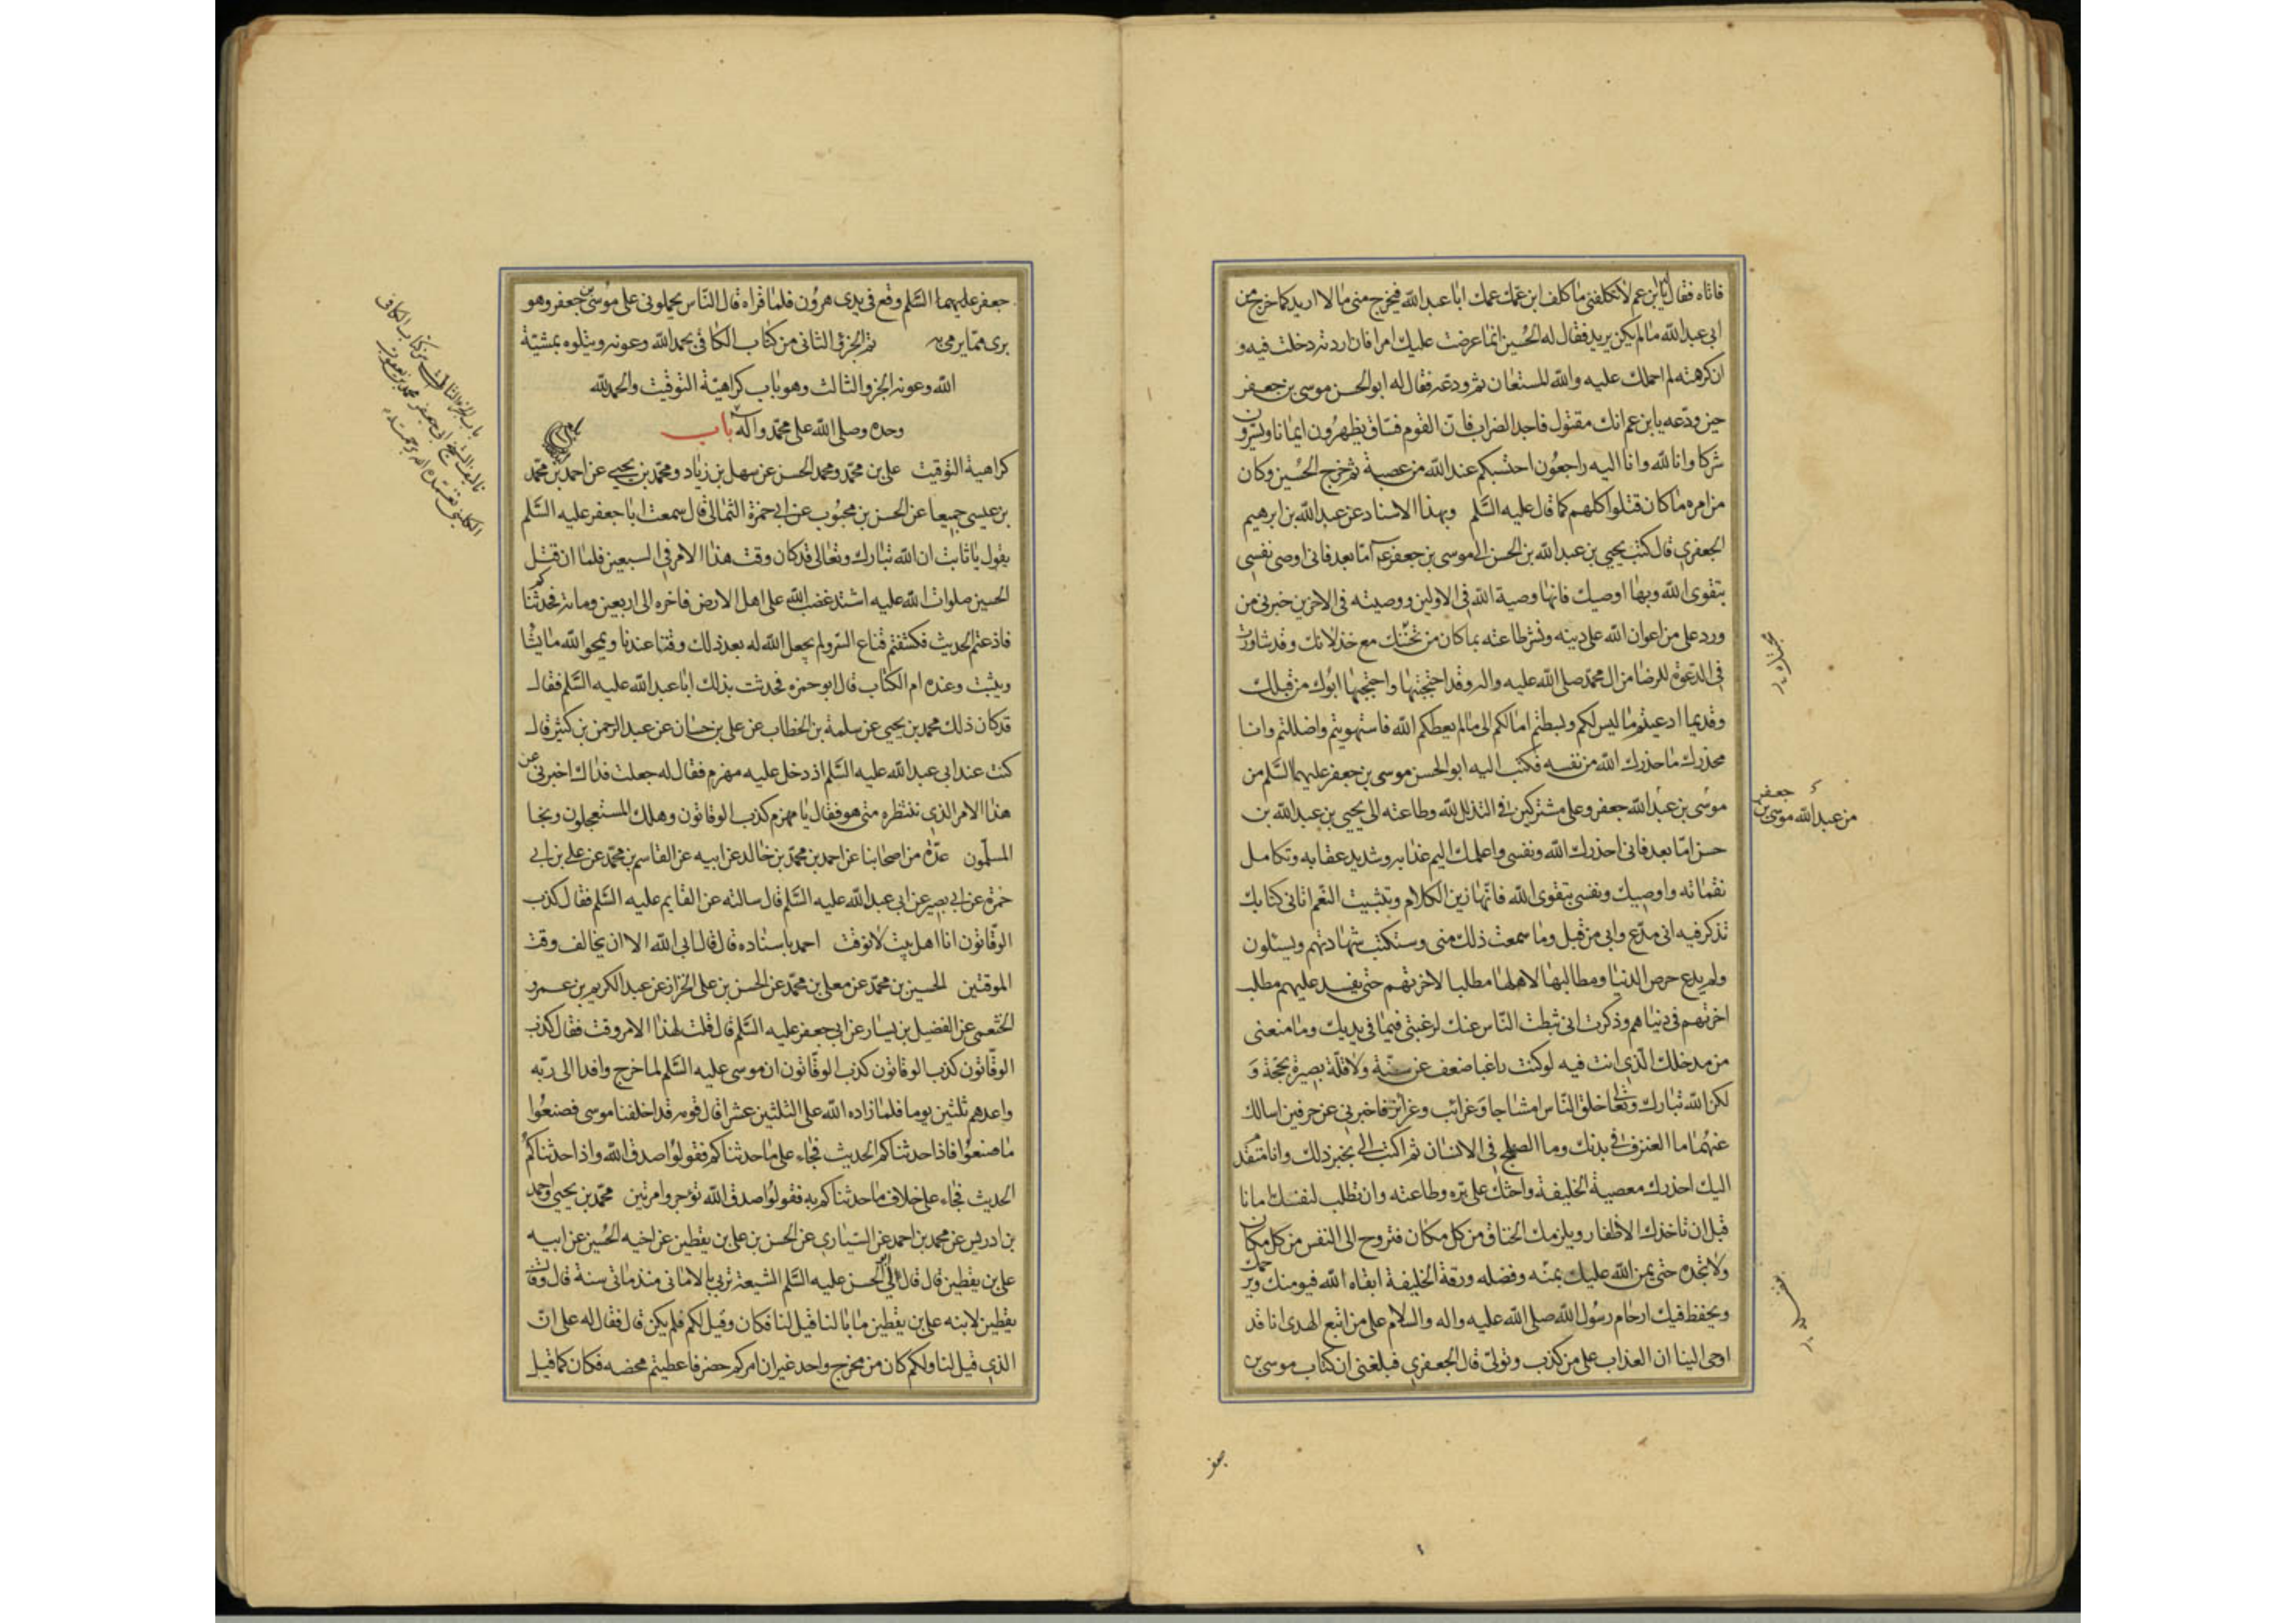 فاتاه فقال يابن عم لا تكلفنى ما كلف ابن عمك عمك ابا عبد الله فيخرج منى ما لا اريد كما خرج من
ابى عبد الله ما لم يكن يريد فقال له الحسين انما عرضت عليك امرا فان اردته دخلت فيه و
ان كرهته لم احملك عليه والله المستعان ثم ودعه فقال له ابو الحسن موسى بن جعفر
حين ودعه يابن عم انك مقتول فاجد الضراب فان القوم فساق يظهرون ايمانا ويسرون
شركا وانا لله وانا اليه راجعون احتسبكم عند الله من عصبة ثم خرج الحسين وكان
من امره ما كان قتلوا كلهم كما قال عليه السلم وبهذا الاسناد عن عبد الله بن ابرهيم
الجعفرى قال كتب يحيى بن عبد الله بن الحسن الى موسى بن جعفر ع اما بعد فانى اوصى نفسى
بتقوى الله وبها اوصيك فانها وصية الله فى الاولين ووصيته فى الاخرين خبرنى من
ورد على من اعوان الله على دينه ونشر طاعته بما كان من تحننك مع خذلانك وقد شاورت
فى الدعوة للرضا من ال محمد صلى الله عليه واله وقد احتجبتها واحتجبها ابوك من قبلك
وقديما ادعيتم ما ليس لكم وبسطتم امالكم الى ما لم يعطكم الله فاستهويتم واضللتم وانا
محذرك ما حذرك الله من نفسه فكتب اليه ابو الحسن موسى بن جعفر عليهما السلم من
موسى بن عبد الله جعفر وعلى مشتركين فى التذلل لله وطاعته الى يحيى بن عبد الله بن
جعفر
من عبد الله موسى بن
حسن اما بعد فانى احذرك الله ونفسى واعلمك اليم عذابه وشديد عقابه وتكامل
نقماته واوصيك ونفسى بتقوى الله فانها زين الكلام وتثبيت النعم اتانى كتابك
تذكر فيه انى مدع وابى من قبل وما سمعت ذلك منى وستكتب شهادتهم ويسئلون
ولم يدع حرص الدنيا ومطالبها لاهلها مطلبا لاخرتهم حتى يفسد عليهم مطلب
اخرتهم فى دنياهم وذكرت انى ثبطت الناس عنك لرغبتى فيما فى يديك وما منعنى
من مدخلك الذى انت فيه لو كنت راغبا ضعف عن سنة ولا قلة بصيرة بحجة و
لكن الله تبارك وتعالى خلق الناس امشاجا وغرائب وغرائز فاخبرنى عن حرفين اسالك
عنهما ما العترف فى بدنك وما الصهلج فى الانسان ثم اكتب الى بخبر ذلك وانا متقدم
اليك احذرك معصية الخليفة واحثك على بره وطاعته وان تطلب لنفسك امانا
قبل ان تاخذك الاظفار ويلزمك الخناق من كل مكان فتروح الى النفس من كل مكان
ولا تجده حتى يمن الله عليك بمنه وفضله ورقة الخليفة ابقاه الله فيومنك ويرحمك
ويحفظ فيك ارحام رسول الله صلى الله عليه واله والسلام على من اتبع الهدى انا قد
اوحى الينا ان العذاب على من كذب وتولى قال الجعفرى فبلغنى ان كتاب موسى بن
جعفر
جعفر عليهما السلم وقع فى يدى هرون فلما قراه قال الناس يحملونى على موسى بن جعفر وهو
برى مما يرمى به تم الجزو الثانى من كتاب الكافى بحمد الله وعونه ويتلوه بمشية
الله وعونه الجزو الثالث وهو باب كراهية التوقيت والحمد لله
وحده وصلى الله على محمد واله باب
كراهية التوقيت على بن محمد ومحمد الحسن عن سهل بن زياد ومحمد بن يحيى عن احمد بن محمد
بن عيسى جميعا عن الحسن بن محبوب عن ابى حمزة الثمالى قال سمعت ابا جعفر عليه السلم
يقول يا ثابت ان الله تبارك وتعالى قد كان وقت هذا الامر فى السبعين فلما ان قتل
الحسين صلوات الله عليه اشتد غضب الله على اهل الارض فاخره الى اربعين ومائة فحدثناكم
فاذعتم الحديث فكشفتم قناع السر ولم يجعل الله له بعد ذلك وقتا عندنا ويمحو الله ما يشا
ويثبت وعنده ام الكتاب قال ابو حمزه فحدثت بذلك ابا عبد الله عليه السلم فقال
قد كان ذلك محمد بن يحيى عن سلمة بن الخطاب عن على بن حسان عن عبد الرحمن بن كثير قال
كنت عند ابى عبد الله عليه السلم اذ دخل عليه مهزم فقال له جعلت فداك اخبرنى عن
هذا الامر الذى ننتظره متى هو فقال يا مهزم كذب الوقاتون وهلك المستعجلون ونجا
المسلمون عدة من اصحابنا عن احمد بن محمد بن خالد عن ابيه عن القاسم بن محمد عن على بن ابى
حمزة عن ابى بصير عن ابى عبد الله عليه السلم قال سالته عن القايم عليه السلم فقال كذب
الوقاتون انا اهل بيت لا نوقت احمد باسناده قال قال ابى الله الا ان يخالف وقت
الموقتين الحسين بن محمد عن معلى بن محمد عن الحسن بن على الخزاز عن عبد الكريم بن عمرو
الخثعمى عن الفضيل بن يسار عن ابى جعفر عليه السلم قال قلت لهذا الامر وقت فقال كذب
الوقاتون كذب الوقاتون كذب الوقاتون ان موسى عليه السلم لما خرج وافدا الى ربه
واعدهم ثلثين يوما فلما زاده الله على الثلثين عشرا قال قومه قد اخلفنا موسى فصنعوا
ما صنعوا فاذا حدثناكم الحديث فجاء على ما حدثناكم فقولوا صدق الله واذا حدثناكم
الحديث فجاء على خلاف ما حدثناكم به فقولوا صدق الله توجروا مرتين محمد بن يحيى واحمد
بن ادريس عن محمد بن احمد عن السيارى عن الحسن بن على بن يقطين عن اخيه الحسين عن ابيه
على بن يقطين قال قال لى ابو الحسن عليه السلم الشيعة تربى بالامانى منذ مائتى سنة قال وقال
يقطين لابنه على بن يقطين ما بالنا قيل لنا فكان وقيل لكم فلم يكن قال فقال له على ان
الذى قيل لنا ولكم كان من مخرج واحد غير ان امركم حضر فاعطيتم محضه فكان كما قيل